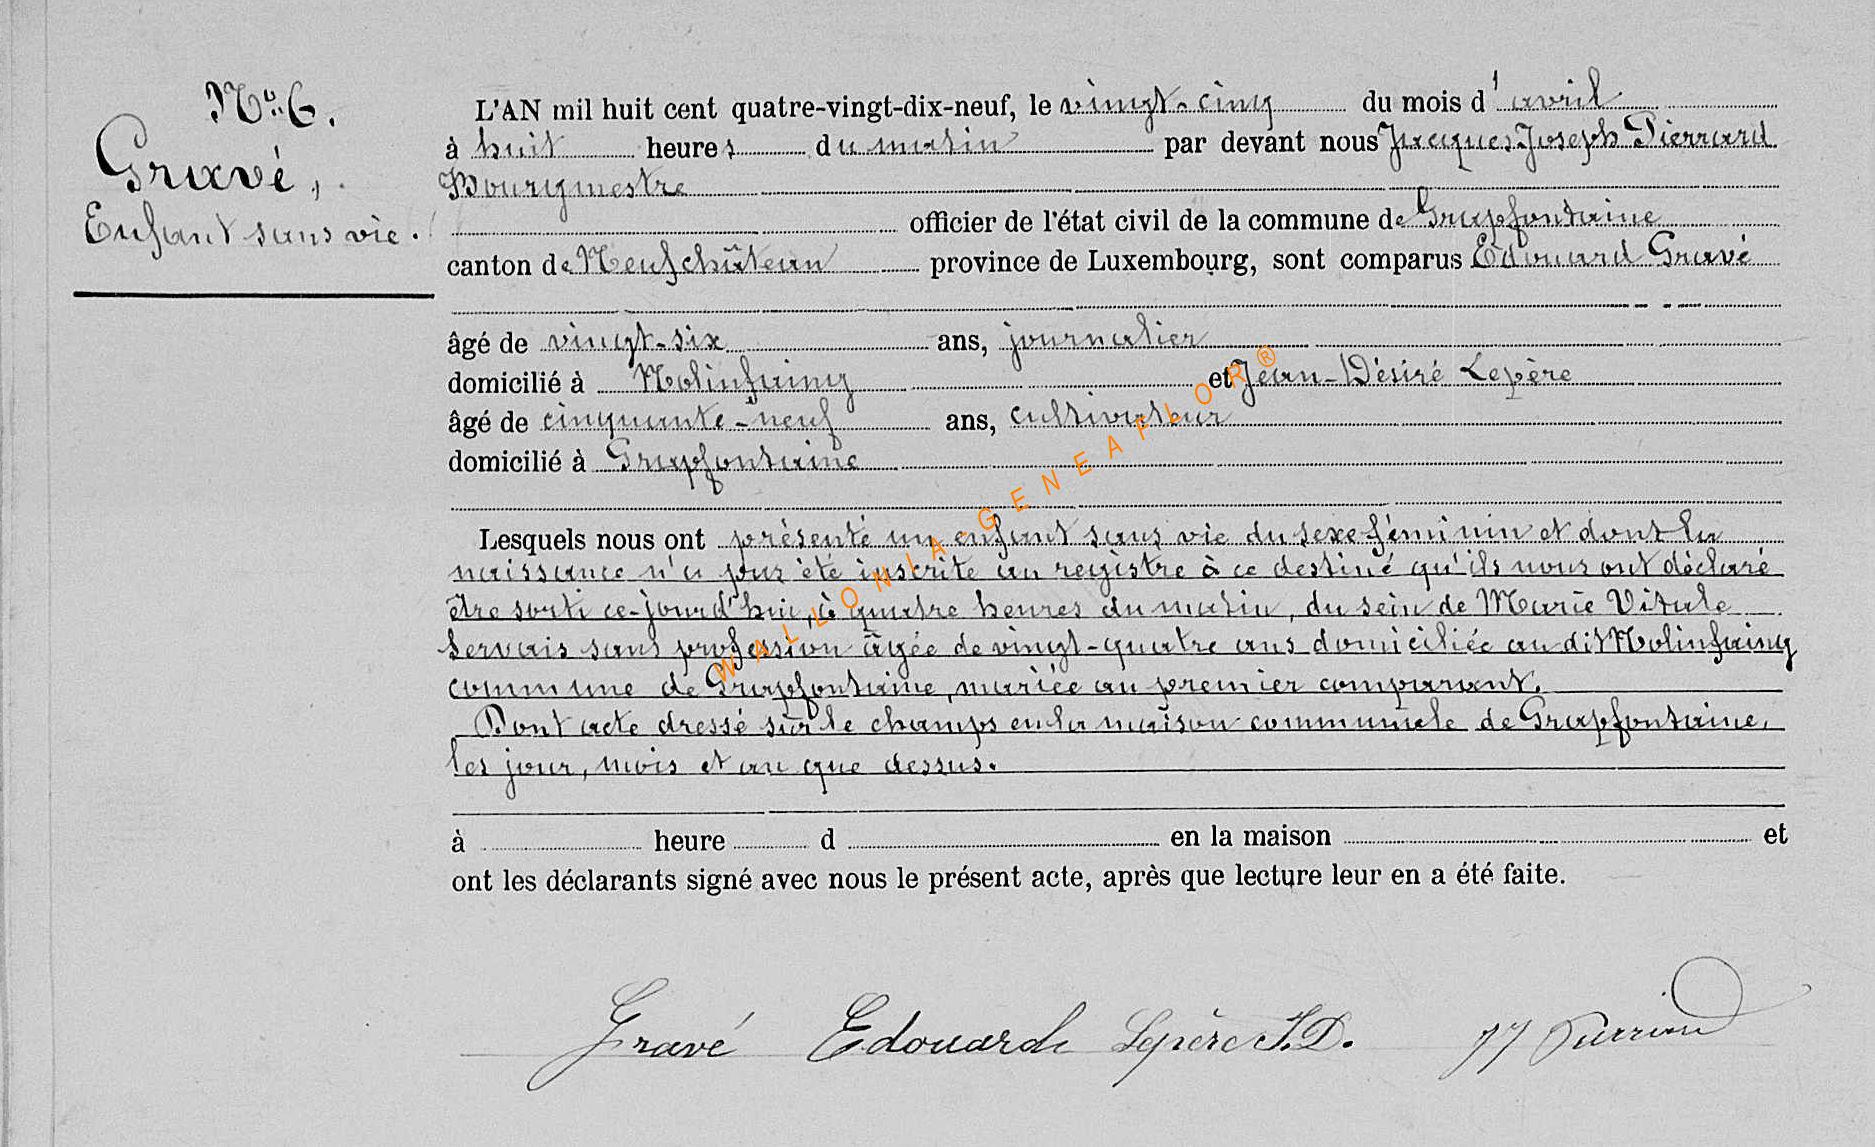 N° 6.
Gravé,
Enfant sans vie.
L'AN mil huit cent quatre-vingt-dix-neuf, le vingt-cinq du mois d'avril
à huit heures du matin par devant nous Jacques Joseph Pierrard
Bourgmestre
officier de l'état civil de la commune de Grapfontaine
canton de Neufchâteau province de Luxembourg, sont comparus Edouard Gravé
âgé de vingt-six ans, journalier
domicilié à Molinfaing et Jean-Désiré Lepère
âgé de cinquante-neuf ans, cultivateur
domicilié à Grapfontaine
Lesquels nous ont présenté un enfant sans vie du sexe féminin et dont la
naissance n'a pas été inscrite au registre à ce destiné qu'ils nous ont déclaré
être sorti ce-jourd'hui, à quatre heures du matin, du sein de Marie Vitale
Servais sans profession âgée de vingt-quatre ans domiciliée au dit Molinfaing
commune de Grapfontaine, mariée au premier comparant.
Dont acte dressé sur le champs en la maison communale de Grapfontaine,
les jour, mois et an que dessus.
à heure d en la maison et
ont les déclarants signé avec nous le présent acte, après que lecture leur en a été faite.
Gravé Edouard Lepère J.D. JJ Pierrard
WALLONIA-GENEAFLOR®